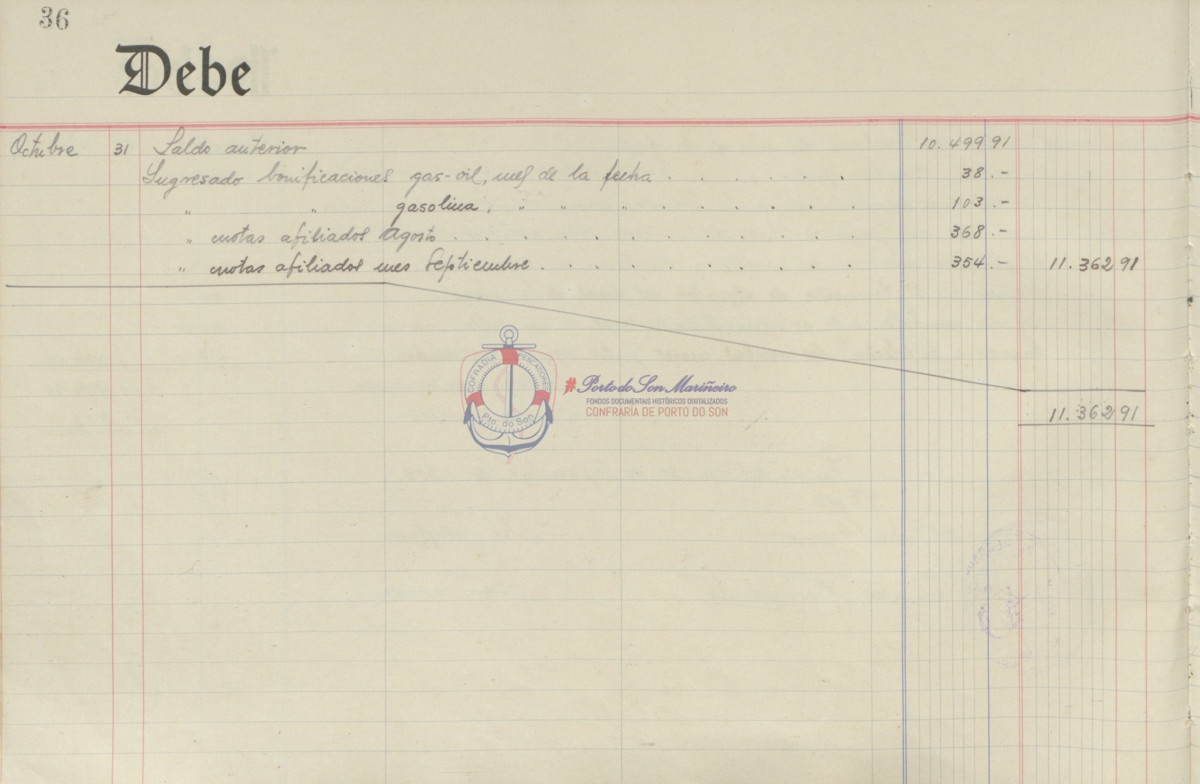 36
Debe
Octubre 31 Saldo anterior 10.499 91
Ingresado bonificaciones gas-oil, mes de la fecha . . . . . . . 38.-
" " gasolina. " " " . . . . . . 103.-
" cuotas afiliados Agosto . . . . . . . . . 368.-
" cuotas afiliados mes Septiembre . . . . . . . . 354.- 11.362 91
11.362 91
COFRADIA PESCADORES
Pto. do Son
#Porto do Son Mariñeiro
FONDOS DOCUMENTAIS HISTÓRICOS DIXITALIZADOS
CONFRARÍA DE PORTO DO SON